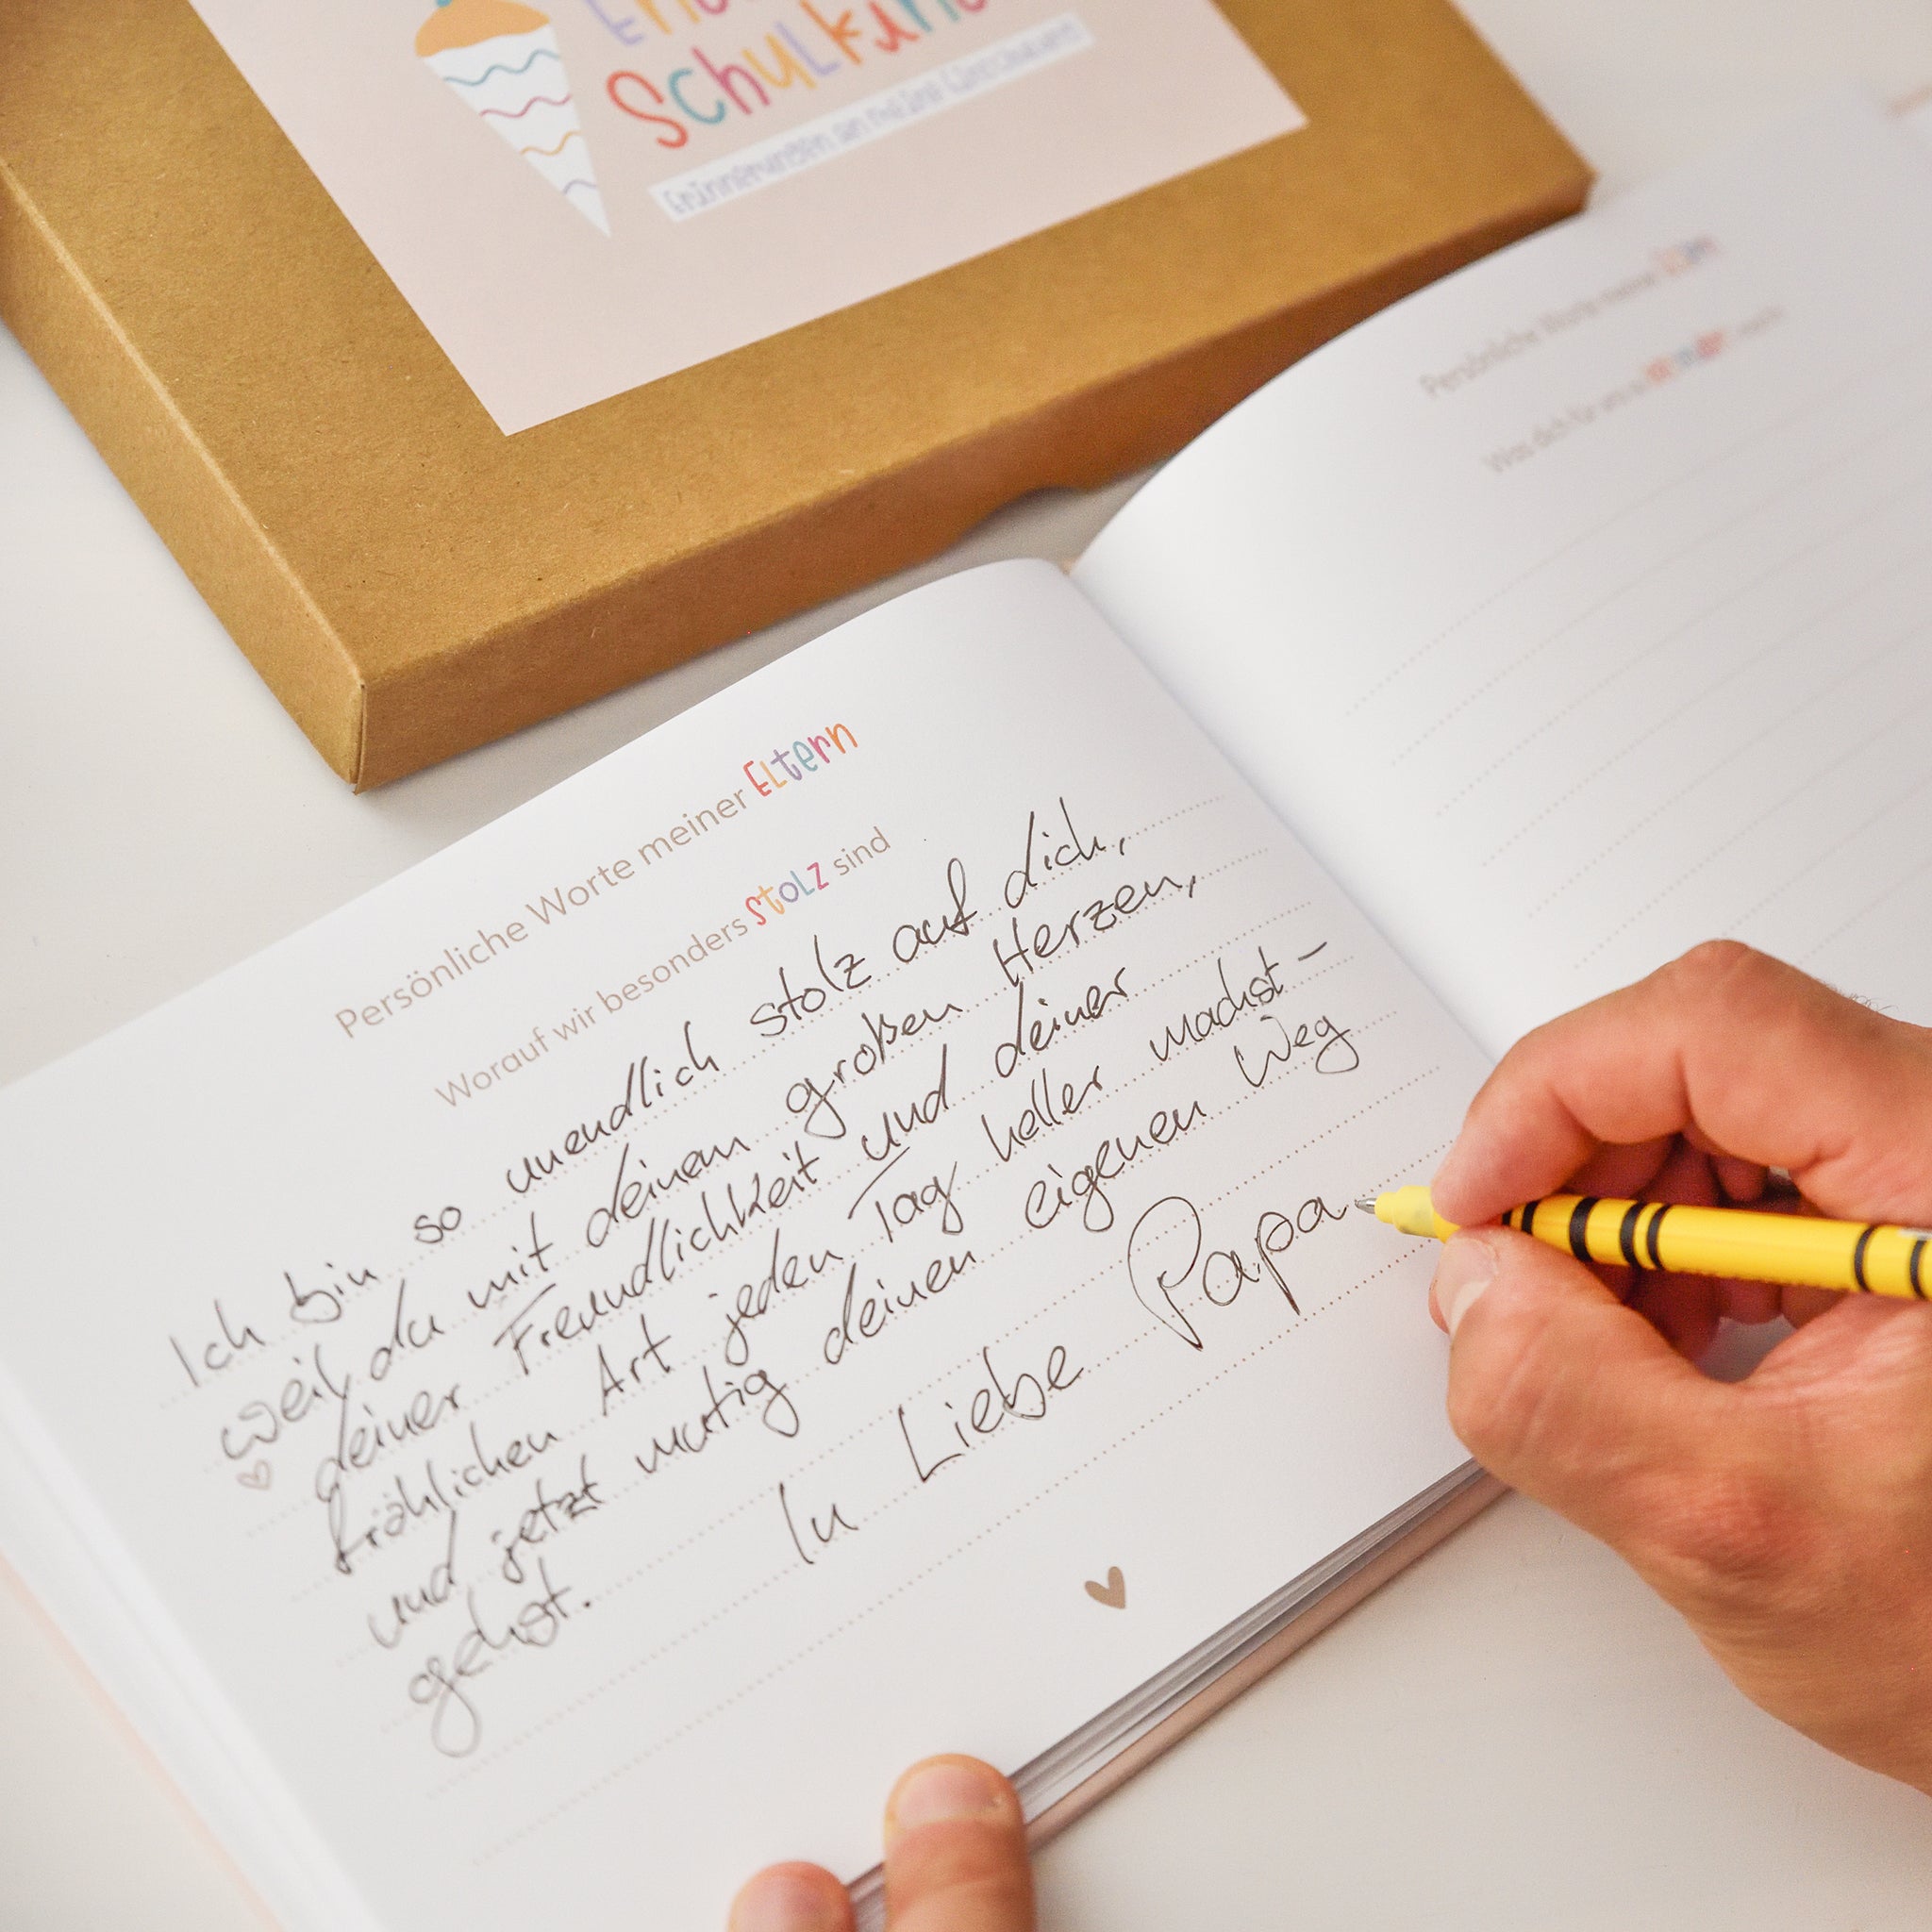 Schulkind
Erinnerungen an meine Einschulung
Persönliche Worte meiner Eltern
Worauf wir besonders stolz sind
Ich bin so unendlich stolz auf dich,
weil du mit deinem großen Herzen,
deiner Freundlichkeit und deiner
fröhlichen Art jeden Tag heller machst –
und jetzt mutig deinen eigenen Weg
gehst.
In Liebe Papa
Persönliche Worte meiner
Was dich für uns